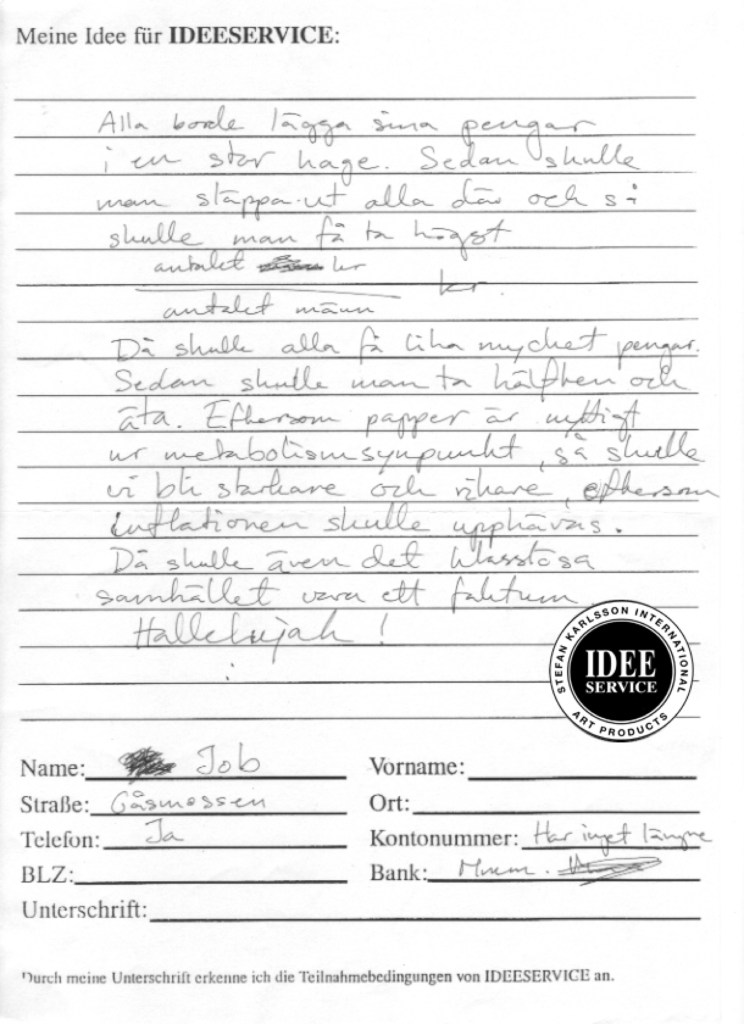 Meine Idee für IDEESERVICE:
Alla borde lägga sina pengar
i en stor hage. Sedan skulle
man släppa ut alla där och så
skulle man få ta högst
antalet kr
kr.
antalet männ
Då skulle alla få lika mycket pengar.
Sedan skulle man ta hälften och
äta. Eftersom papper är nyttigt
ur metabolismsynpunkt, så skulle
vi bli starkare och rikare, eftersom
inflationen skulle upphävas.
Då skulle även det klasslösa
samhället vara ett faktum
Hallelujah!
STEFAN KARLSSON INTERNATIONAL
IDEE
SERVICE
ART PRODUCTS
Name: Job Vorname:
Straße: Gåsmossen Ort:
Telefon: Ja Kontonummer: Har inget längre
BLZ: Bank: Mnem.
Unterschrift:
Durch meine Unterschrift erkenne ich die Teilnahmebedingungen von IDEESERVICE an.